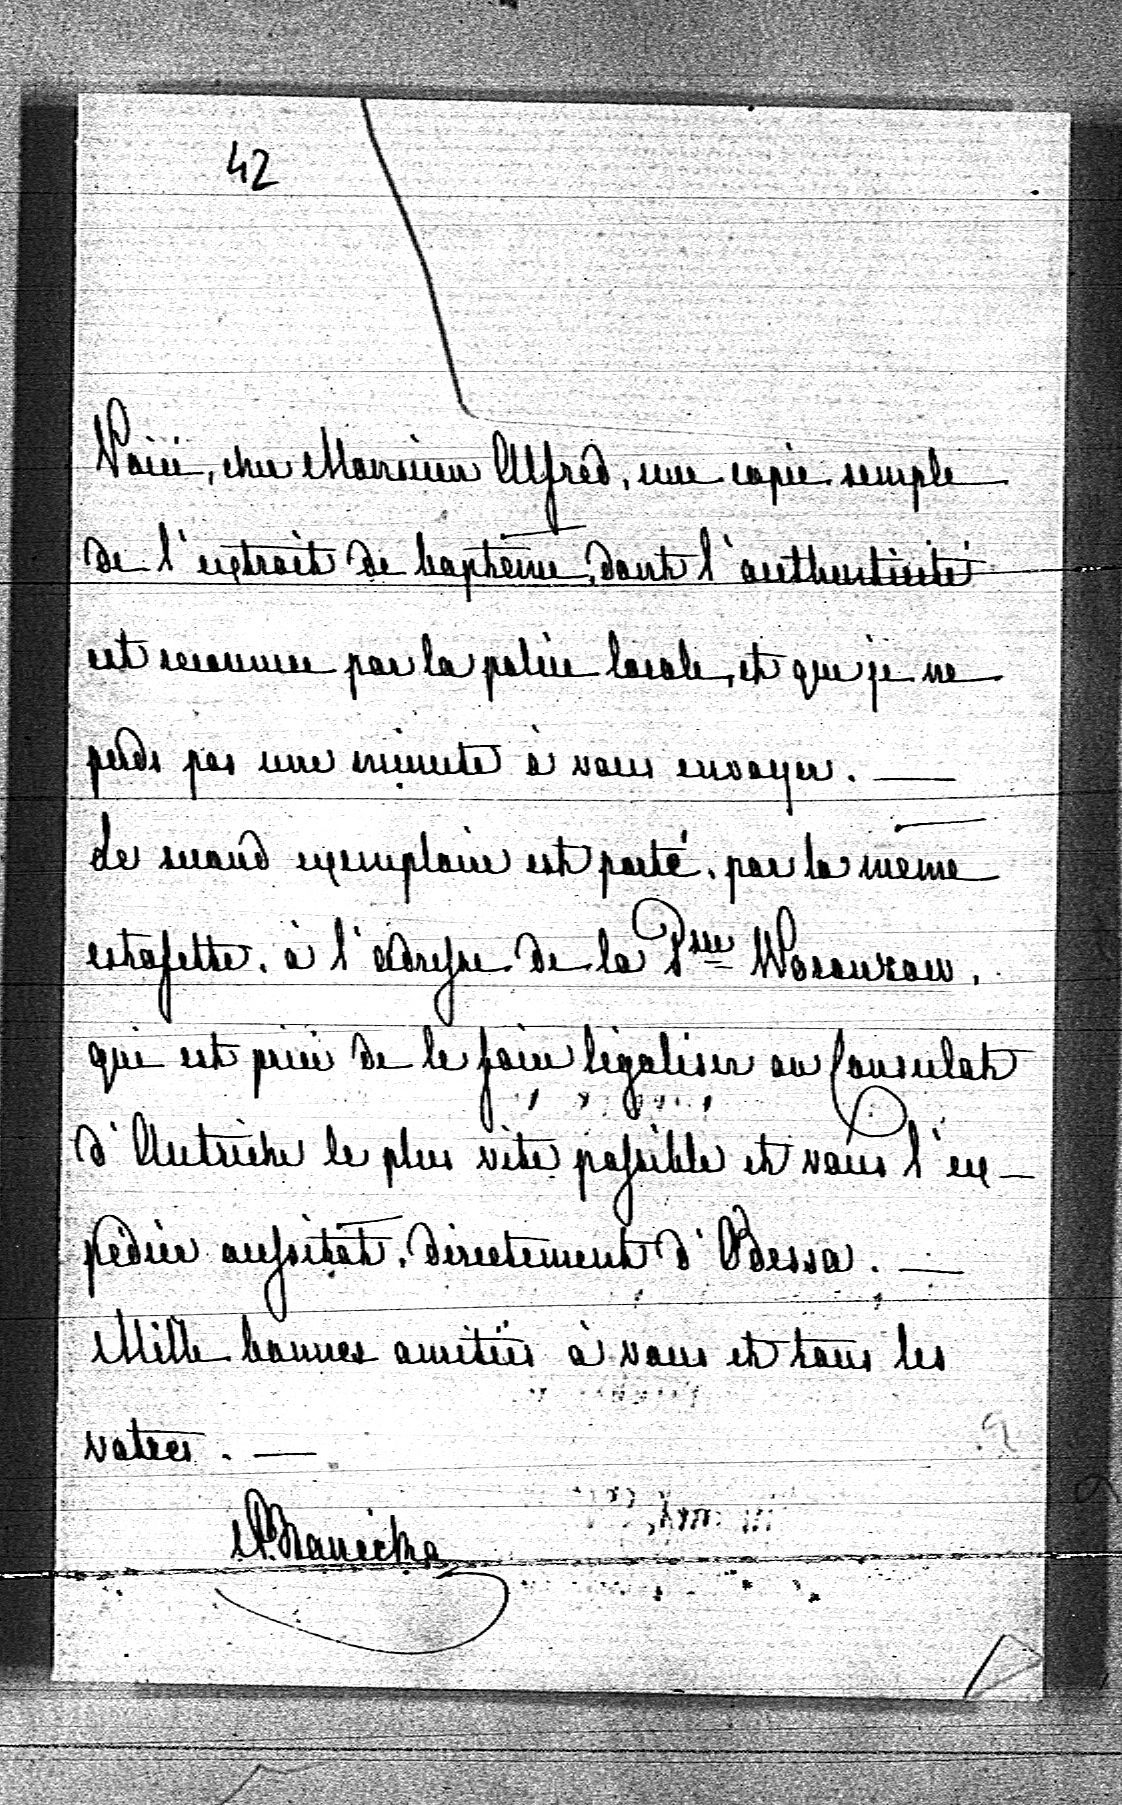 42
Voici, cher Monsieur Alfred, une copie simple
de l'extrait de baptême, dont l'authenticité
est reconnue par la police locale, et que je ne
perds pas une minute à vous envoyer. —
Le second exemplaire est porté, par la même
estafette, à l'adresse de la Psse Woronzow,
qui est priée de le faire légaliser au Consulat
d'Autriche le plus vite possible et vous l'ex-
pédier aussitôt, directement d'Odessa. —
Mille bonnes amitiés à vous et tous les
votres. —
Branicka